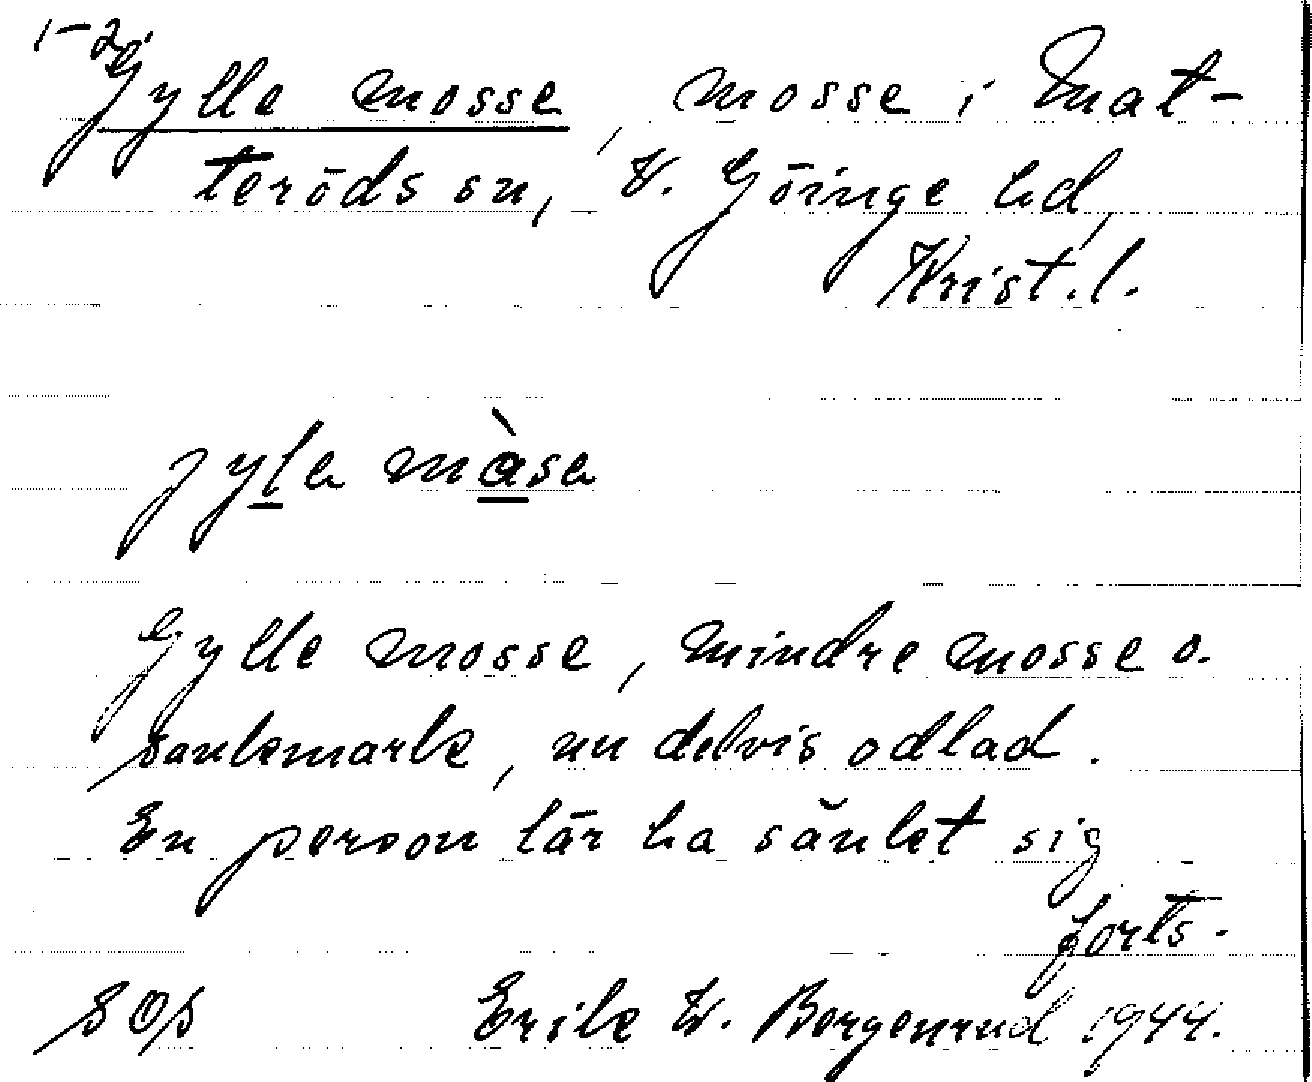 1-2
Gylle mosse, mosse i Mat-
teröds sn, V. Göinge hd,
Krist. l.
jyla màsa
Gylle mosse, mindre mosse o.
sankmark, nu delvis odlad.
En person lär ha sänkt sig
forts.
SOS Erik V. Borgenrud 1944.